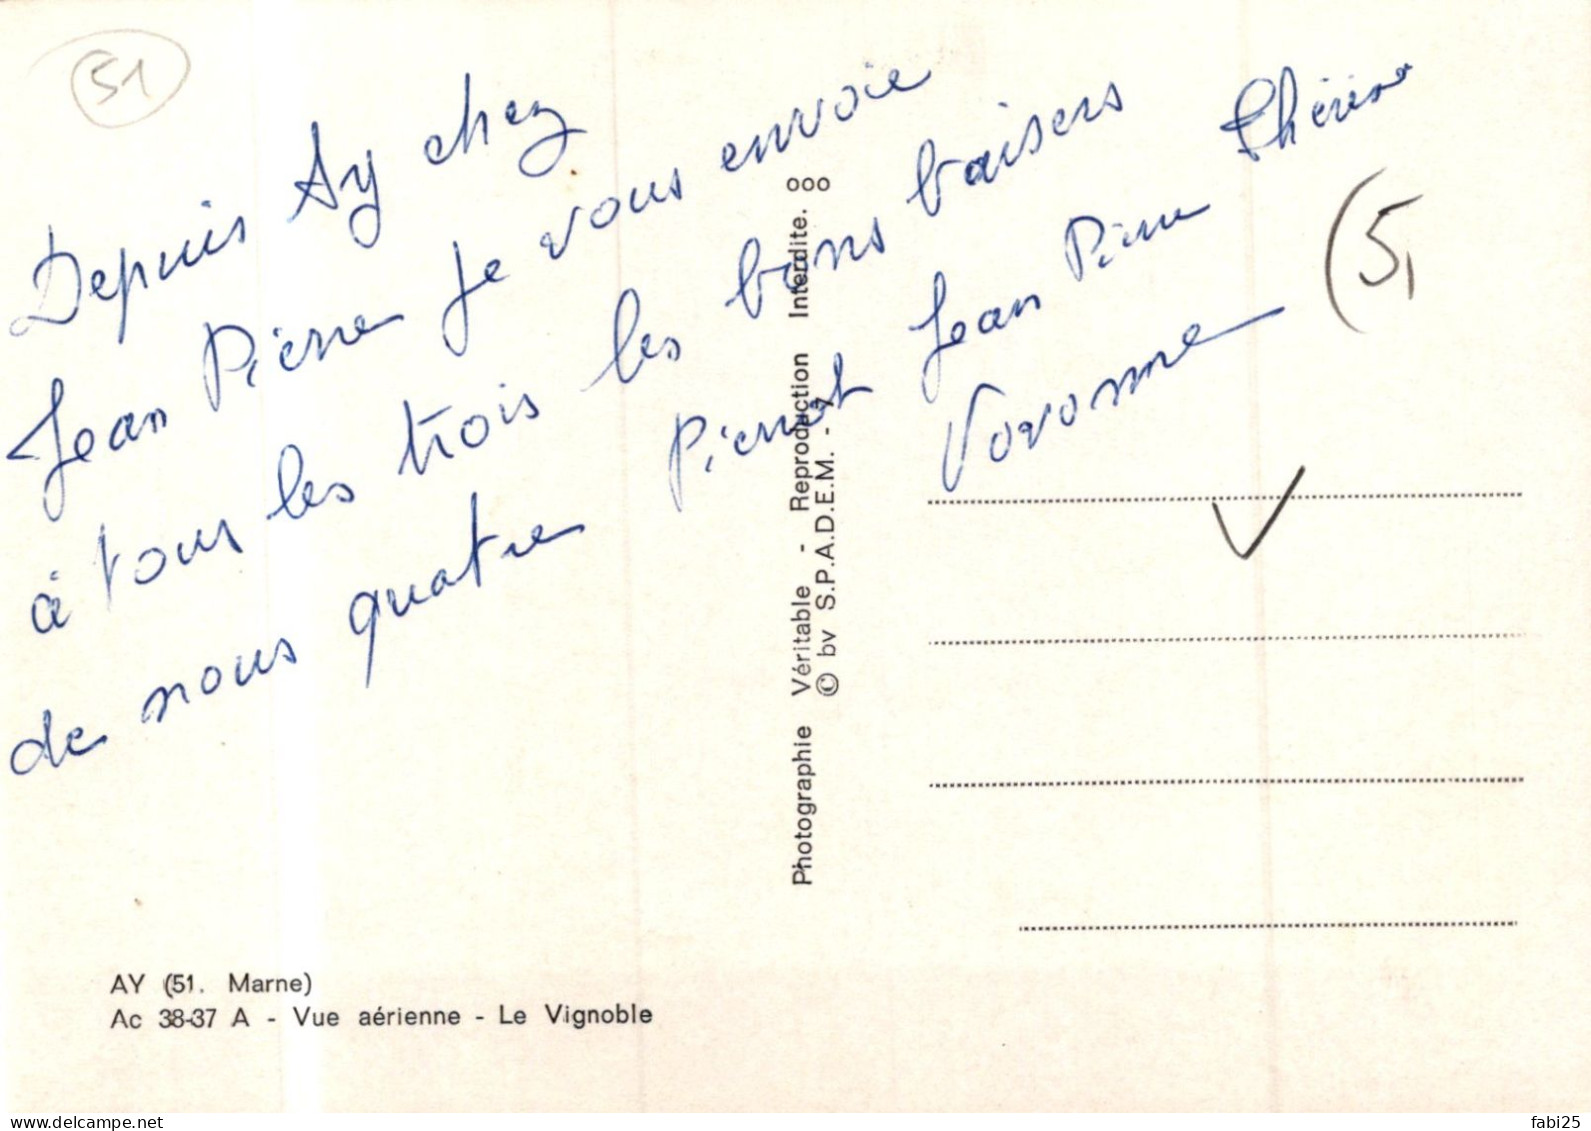 51
Depuis Ay chez
Jean Pierre je vous envoie
à tous les trois les bons baisers
de nous quatre Pierrot Jean Pierre Thérèse
(51
Photographie Véritable - Reproduction Interdite. ooo
© by S.P.A.D.E.M. - 7
AY (51. Marne)
Ac 38-37 A - Vue aérienne - Le Vignoble
www.delcampe.net
fabi25